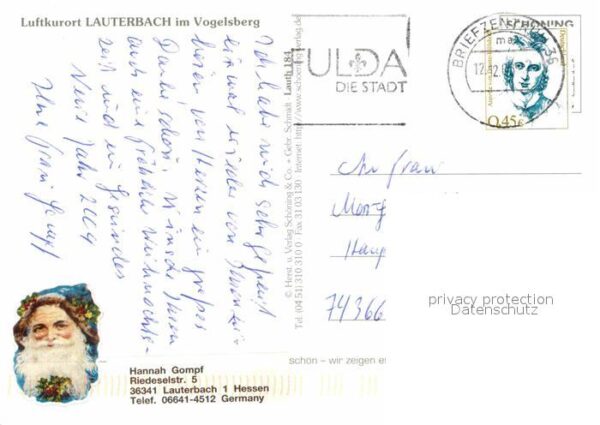 Luftkurort LAUTERBACH im Vogelsberg
Ich habe mich sehr gefreut
einmal wieder von Ihnen zu
hören von Herzen ein großes
Dankeschön, wünsche Ihnen
auch eine fröhliche Weihnachts-
zeit und ein gesundes
Neue Jahr 2004
Ihre Frau Gompf
© Herst. u. Verlag Schöning & Co. + Gebr. Schmidt · Lauth 184
Tel. (04 51) 310 310 0 · Fax 31 03 130 · Internet: http://www.schoening-verlag.de
ULDA
DIE STADT
BRIEFZEN 36
ma
12.12.0
SCHÖNING
0,45€
An Frau
74366
privacy protection
Datenschutz
schön – wir zeigen es
Hannah Gompf
Riedeselstr. 5
36341 Lauterbach 1 Hessen
Telef. 06641-4512 Germany